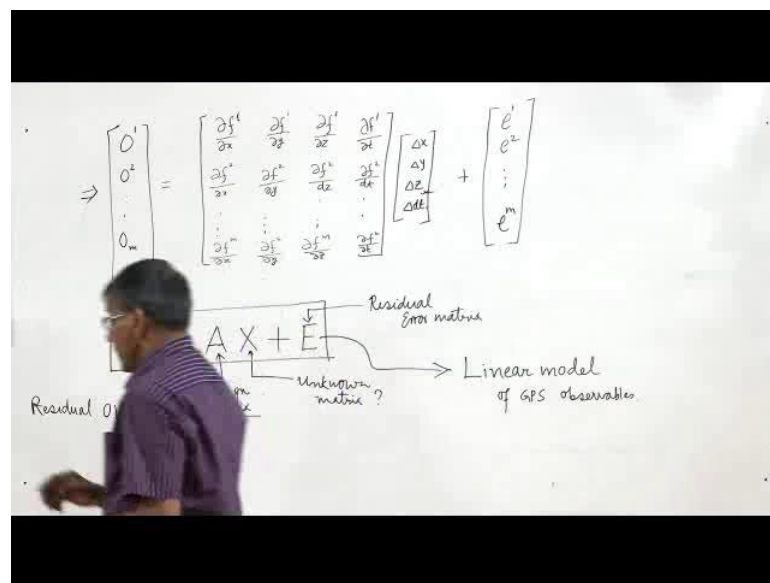 ⇒ [O¹ O² . . O_m] = [∂f¹/∂x ∂f¹/∂y ∂f¹/∂z ∂f¹/∂t
∂f²/∂x ∂f²/∂y ∂f²/dz ∂f²/dt
⋮ ⋮ ⋮ ⋮
∂f^m/∂x ∂f²/∂y ∂f^m/∂z ∂f²/∂t] [Δx Δy Δz Δdt] + [e¹ e² ⋮ e^m]
Residual
Error matrix
A X + E
Linear model
of GPS observables
Unknown
matrix ?
Residual